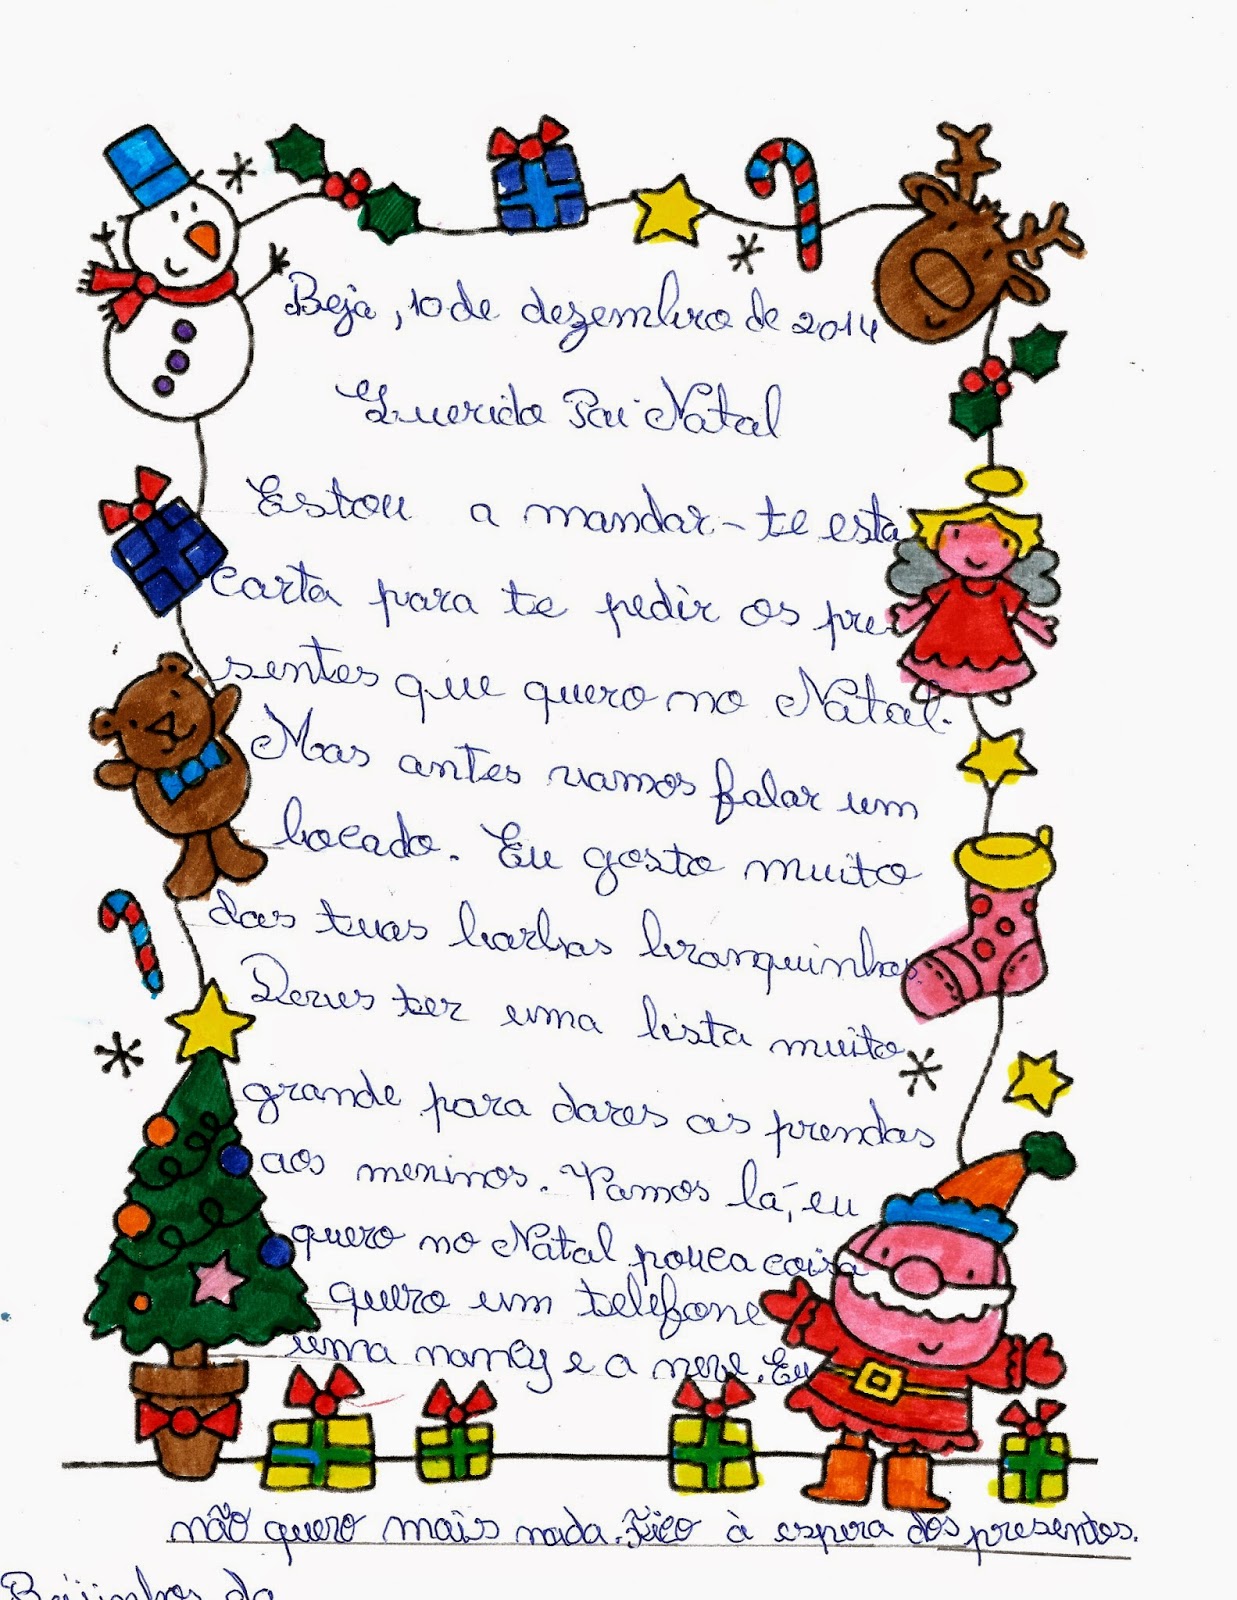 Beja, 10 de dezembro de 2014
Querido Pai Natal
Estou a mandar-te esta
carta para te pedir os pre-
sentes que quero no Natal.
Mas antes vamos falar um
bocado. Eu gosto muito
das tuas barbas branquinhas.
Deves ter uma lista muito
grande para dares as prendas
aos meninos. Vamos lá, eu
quero no Natal pouca coisa
quero um telefone
uma nancy e a neve. Eu
não quero mais nada. Fico à espera dos presentes.
Beijinhos da